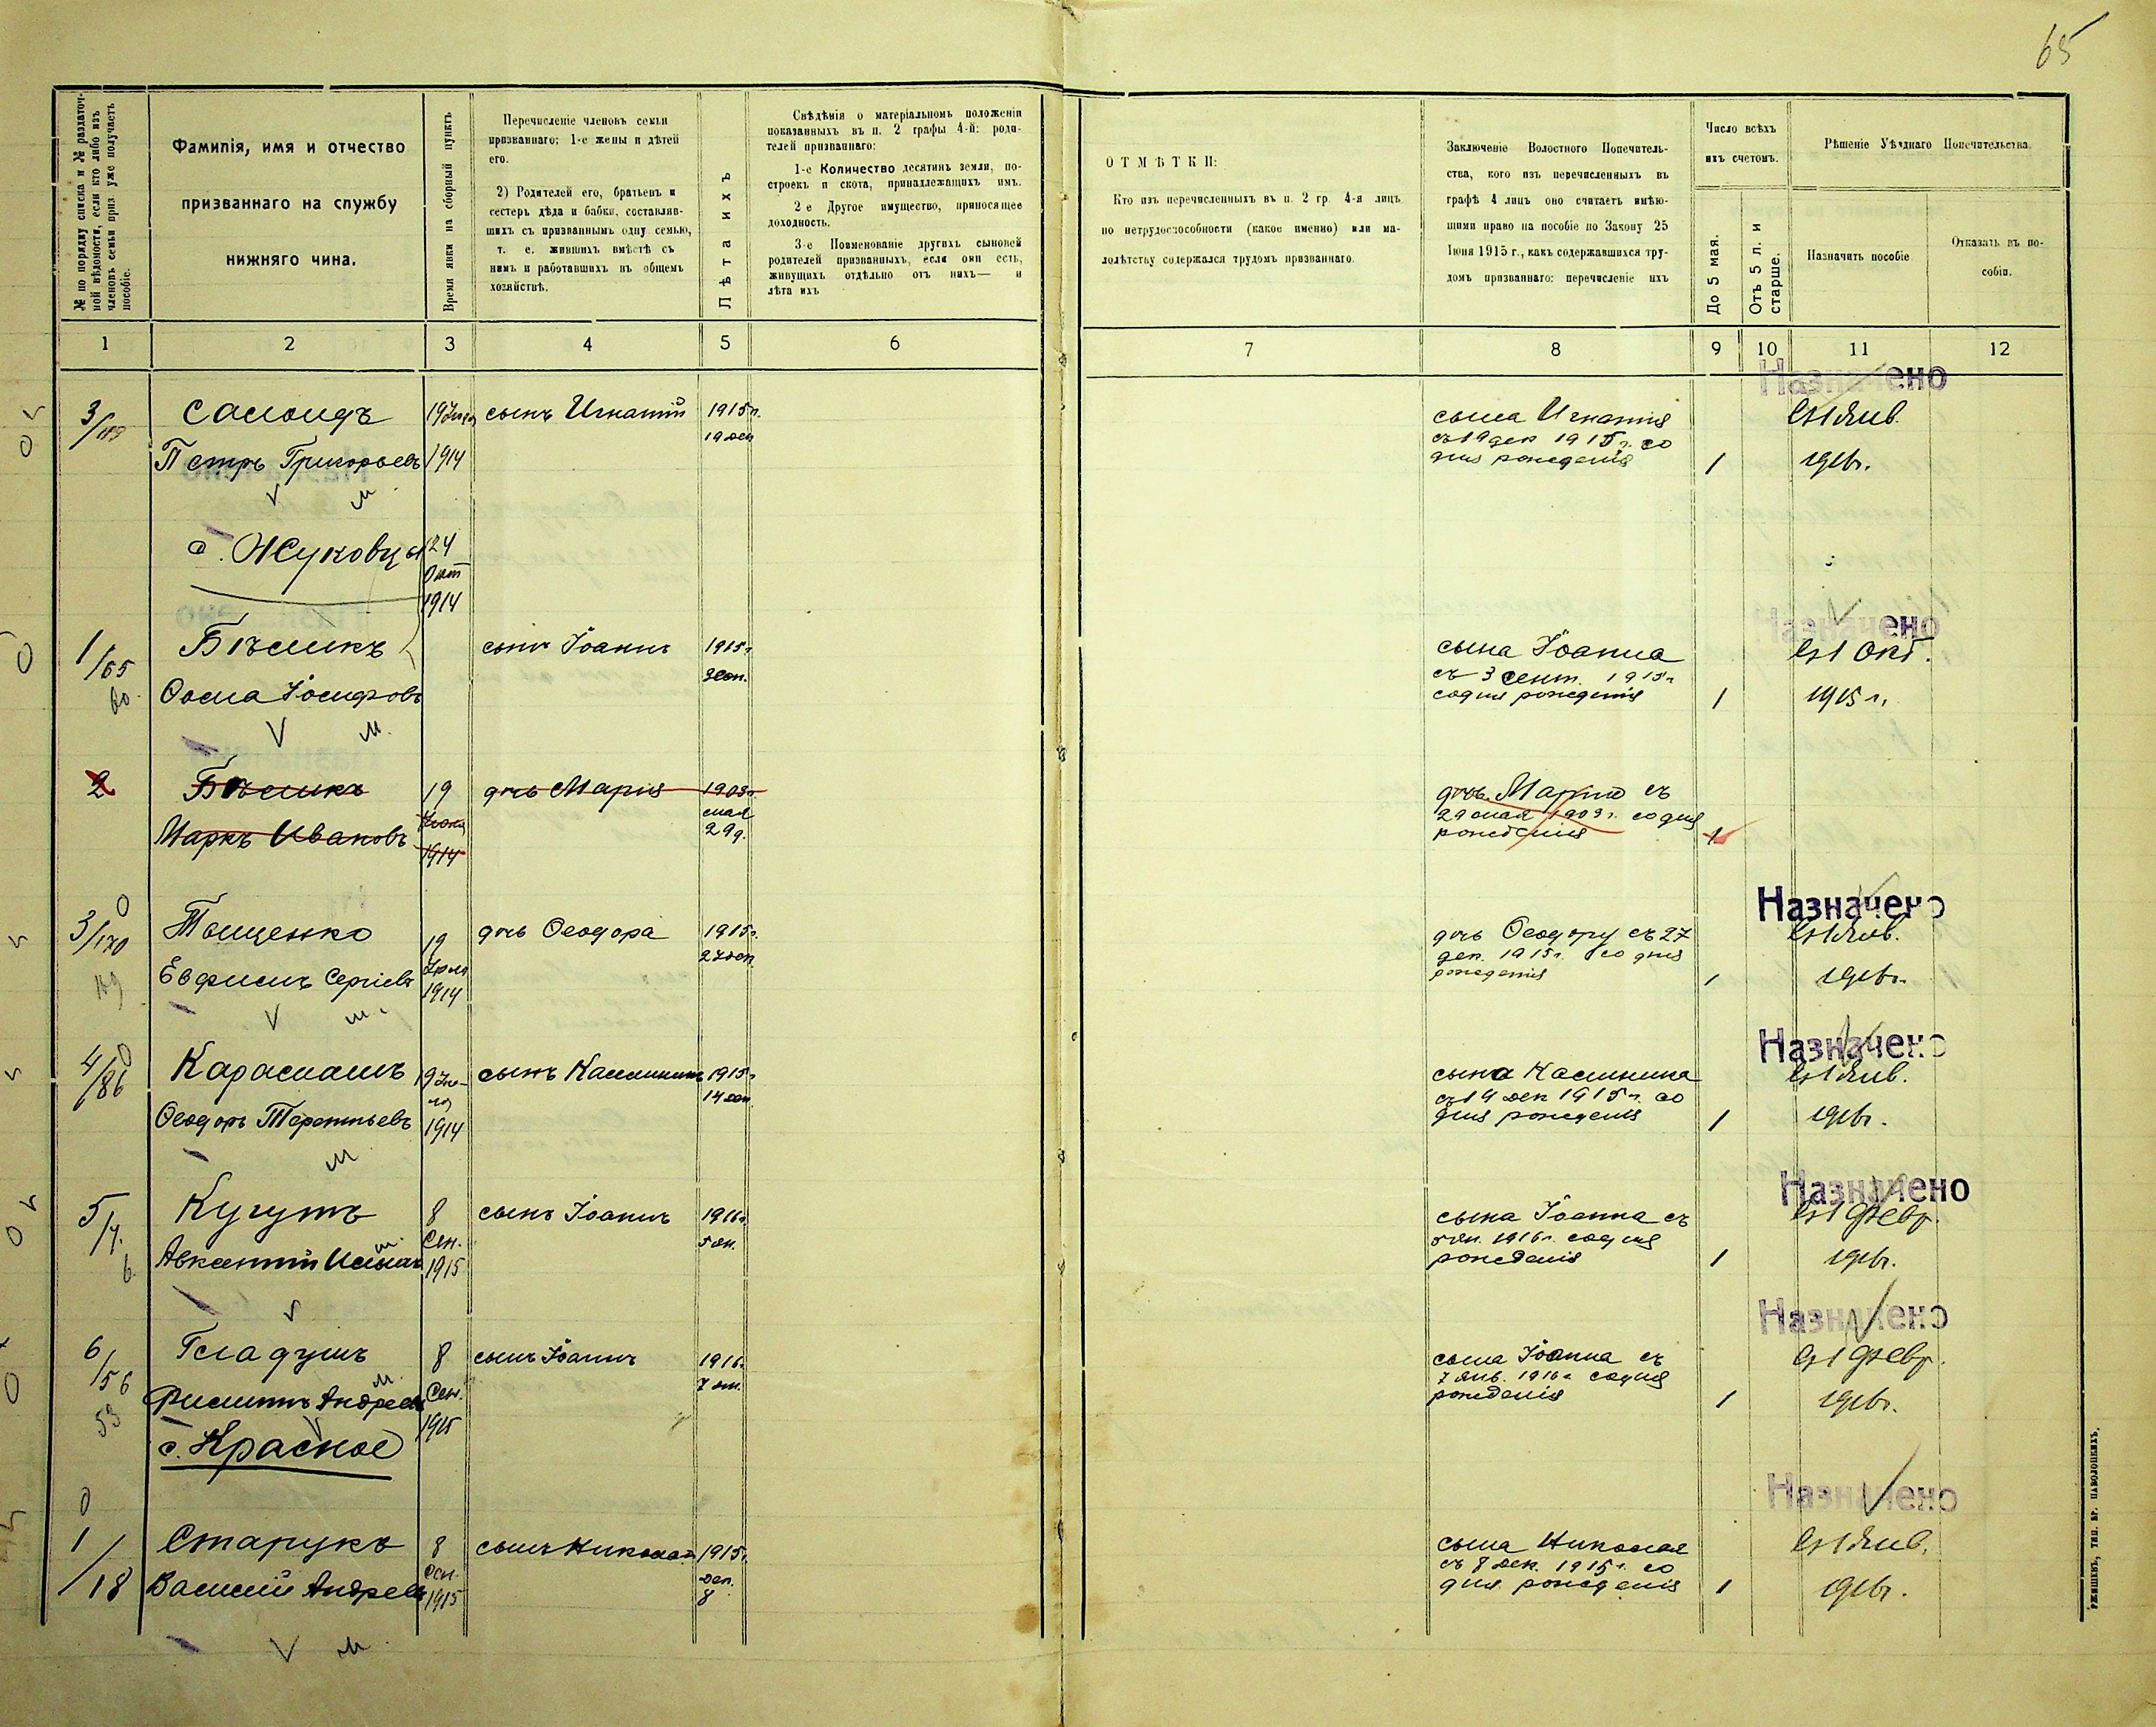 65
№ по порядку списка и № раздаточ-
ной вѣдомости, если кто либо изъ
членовъ семьи приз. уже получаетъ
пособіе.
Фамилія, имя и отчество
призваннаго на службу
нижняго чина.
Время явки на сборный пунктъ
Перечисленіе членовъ семьи
призваннаго; 1-е жены и дѣтей
его.
2) Родителей его, братьевъ и
сестеръ дѣда и бабки, составляв-
шихъ съ призваннымъ одну семью,
т. е. жившихъ вмѣстѣ съ
нимъ и работавшихъ въ общемъ
хозяйствѣ.
Лѣта ихъ
Свѣдѣнія о матеріальномъ положеніи
показанныхъ въ п. 2 графы 4-й: роди-
телей призваннаго:
1-е Количество десятинъ земли, по-
строекъ и скота, принадлежащихъ имъ.
2 е Другое имущество, приносящее
доходность.
3-е Поименованіе другихъ сыновей
родителей призванныхъ, если они есть,
живущихъ отдѣльно отъ нихъ— и
лѣта ихъ
ОТМѢТКИ:
Кто изъ перечисленныхъ въ п. 2 гр. 4-я лицъ
по нетрудоспособности (какое именно) или ма-
лолѣтству содержался трудомъ призваннаго.
Заключеніе Волостного Попечитель-
ства, кого изъ перечисленныхъ въ
графѣ 4 лицъ оно считаетъ имѣю-
щими право на пособіе по Закону 25
Іюня 1915 г., какъ содержавшихся тру-
домъ призваннаго: перечисленіе ихъ
Число всѣхъ
ихъ счетомъ.
До 5 мая.
Отъ 5 л. и
старше.
Рѣшеніе Уѣзднаго Попечительства.
Назначить пособіе
Отказать въ по-
собіи.
1 2 3 4 5 6 7 8 9 10 11 12
Назначено
3/
Петръ Григорьевъ
1914
сынъ Игнатій
1915 г.
19 дек
сына Игнатія
съ 19 дек 1915 г. со
дня рожденія
1
съ 1 Янв.
1916 г.
с. Жуковцы
24
Окт
1914
Назначено
1/65
Іосифовъ
сынъ Іоаннъ
1915 г
3 сен.
сына Іоанна
съ 3 сент. 1915 г
со дня рожденія
1
съ 1 Окт.
1915 г.
2
Маркъ Ивановъ
19
Іюля
1914
дочь Марія
1909 г.
мая
29 д.
дочь Марію съ
29 мая 1909 г. со дня
рожденія
1
Назначено
3/170
Тищенко
Евфимъ Сергіевъ
19
Іюля
1914
дочь Ѳеодора
1915 г.
27 дек
дочь Ѳеодору съ 27
дек. 1915 г. со дня
рожденія
1
съ 1 Янв.
1916 г.
Назначено
4/86
Ѳеодоръ Терентьевъ
19 Іюля
1914
сынъ
1915 г
14 дек.
сына
дек 1915 г. со
дня рожденія
1
съ 1 Янв.
1916 г.
Назначено
5/7.
6.
8
Сен.
1915
сынъ Іоаннъ
1916 г
5 ян.
сына Іоанна съ
5 Ян. 1916 г. со дня
рожденія
1
съ 1 Февр.
1916 г.
Назначено
6/56
53
Гладушъ
Филиппъ Андреевъ
8
Сен.
1915
сынъ Іоаннъ
1916 г
7 ян.
сына Іоанна съ
7 Янв. 1916 г со дня
рожденія
1
съ 1 Февр.
1916 г.
с. Красное
Назначено
1/18
Старукъ
Василій Андреевъ
8
Сен.
1915
сынъ Николай
1915 г.
дек.
8
сына Николая
съ 8 Дек. 1915 г. со
дня рожденія
1
съ 1 Янв.
1916 г.
РЖИЩЕВЪ, ТИП. БР. ПАВОЛОЦКИХЪ.